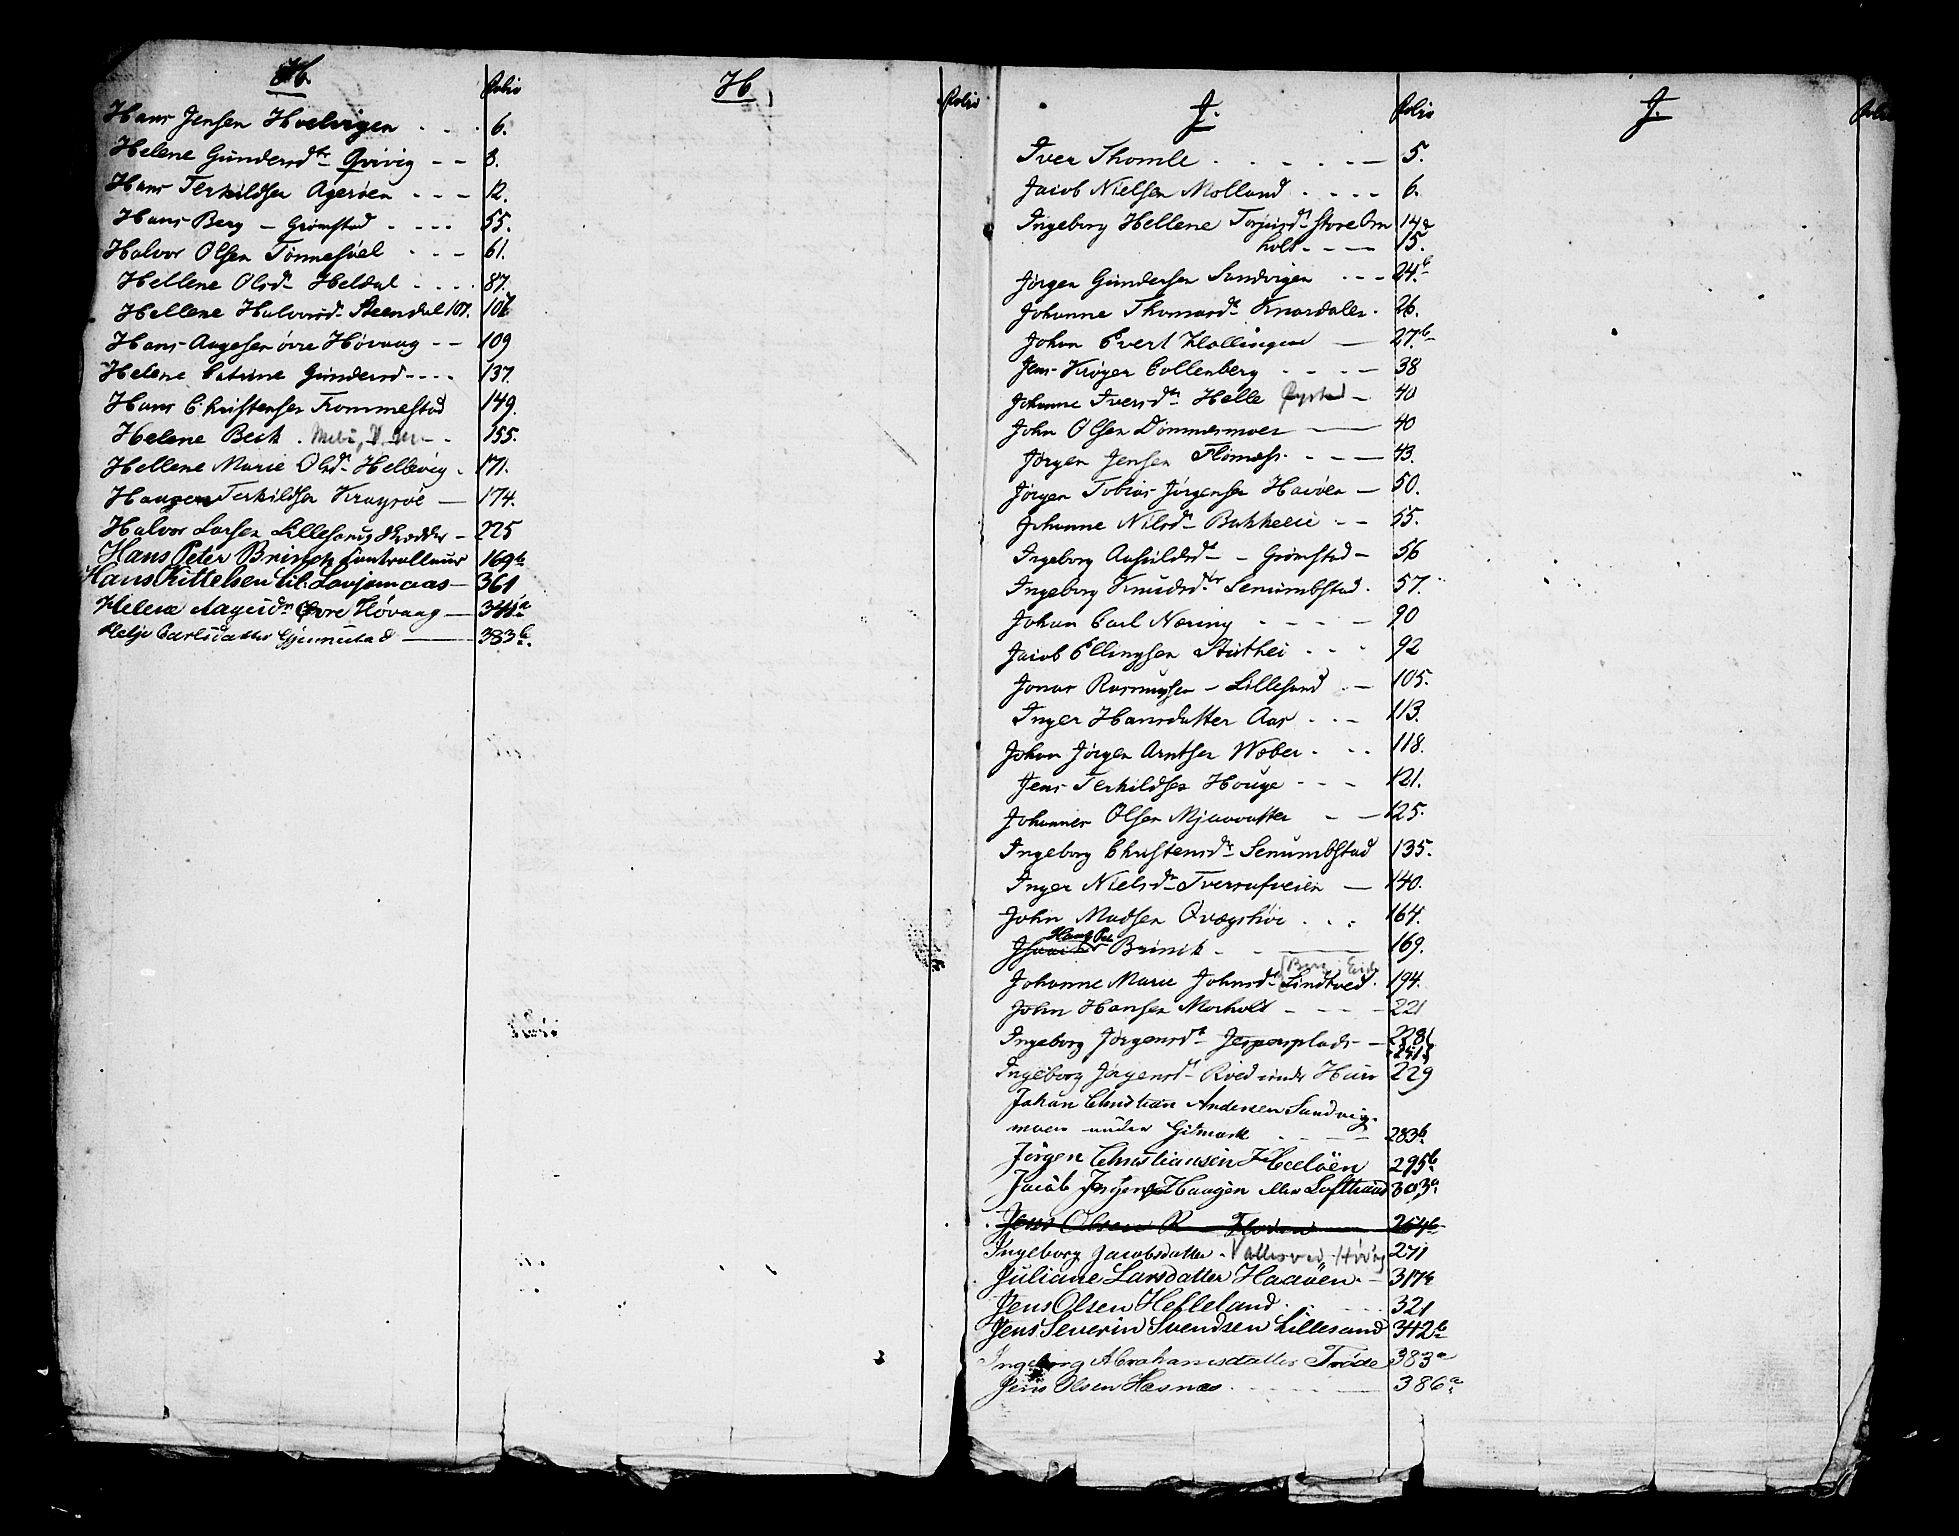 H.
Folio
Hans Jensen Hvelvigen 6.
Helene Gundersdtr Qvivig 8.
Hans Terkildsen Agerøen 12.
Hans Berg - Grimstad 55.
Halvor Olsen Tønnesøel 61.
Hellene Olsdr Heldal 87.
Hellene Halvorsdr Steendal 107. 106
Hans Aagesen øvre Høvaag 109
Helene Catrine Gundersd 137.
Hans Christensen Trommestad 149.
Helene Beck 155.
Hellene Marie Olsdr Hellevig 171.
Terkildsen Kragsøe 174.
Halvor Larsen Lillesand 225
Hans Peter Brinch Controlleur 169b
Hans Kittelsen Lil: Lavjomaas 361
Helene Aagesdr Øvre Høvaag 344a
Carlsdatter Gjennestad 383b.
H
Folio
J.
Folio
Iver Thomle 5.
Jacob Nielsen Molland 6.
Ingeborg Hellene Torjusdr Store Om 14 &
holt 15.
Jørgen Gundersen Sandvigen 24b
Johanne Thomasdr Knardalen 26.
Johan Evert Hallingen 27.b
Jens Krøger Collenberg 38
Johanne Iversdtr Helle 40
John Olsen Dømmesmoen 40
Jørgen Jensen Flømæss 43.
Jørgen Tobias Jørgensen Haaøen 50.
Johanne Nilsdr Bukkelie 55.
Ingeborg Asfuldsdr - Grimstad 56
Ingeborg Knudsdtr Senumbstad 57.
Johan Carl Næring 90
Jacob Ellingsen Støthei 92
Jonas Rasmussen - Lillesand 105.
Inger Hansdatter Aas 113.
Johan Jørgen Arntsen Wæber 118.
Jens Terkildsen Houge 121.
Johannes Olsen Mjaavatten 125.
Ingeborg Christensdr Senumbstad 135.
Inger Nielsdr Tverrefveien 140.
John Madsen Qvægshei 164.
Hans Pet.
Brinck 169.
Johanne Marie Johnsdr Lindtved 194.
John Hansen Morholt 221
Ingeborg Jørgensdr Jespersplads 228
251
Ingeborg Jørgensdr Roed under 229
Johan Christian Andersen Sandvig
moen under Gitmark 283b
Jørgen Christiansen Heeløen 295b
Jacob Jørgen Haagen eller Loftsund 303a
Jens Olsen 264b
Ingeborg Jacobsdatter Vallesverd Høvåg 271
Juliane Larsdatter Haaøen 317b
Jens Olsen Hefleland 321
Jens Severin Svendsen Lillesand 342b
Ingeborg Abrahamsdatter Trøde 383a
Jens Olsen Hæsnæs 386a
J.
Folio